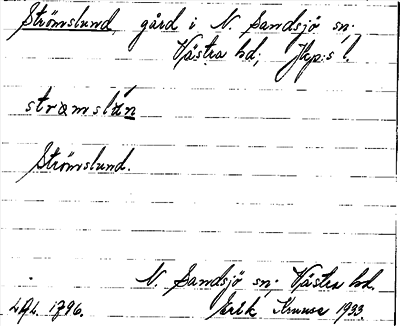 Strömslund, gård i N. Sandsjö sn;
Västra hd; Jkp:s l.
strœmslún
Strömslund.
N. Sandsjö sn; Västra hd.
LAL. 1796. Erik Kruuse 1933.